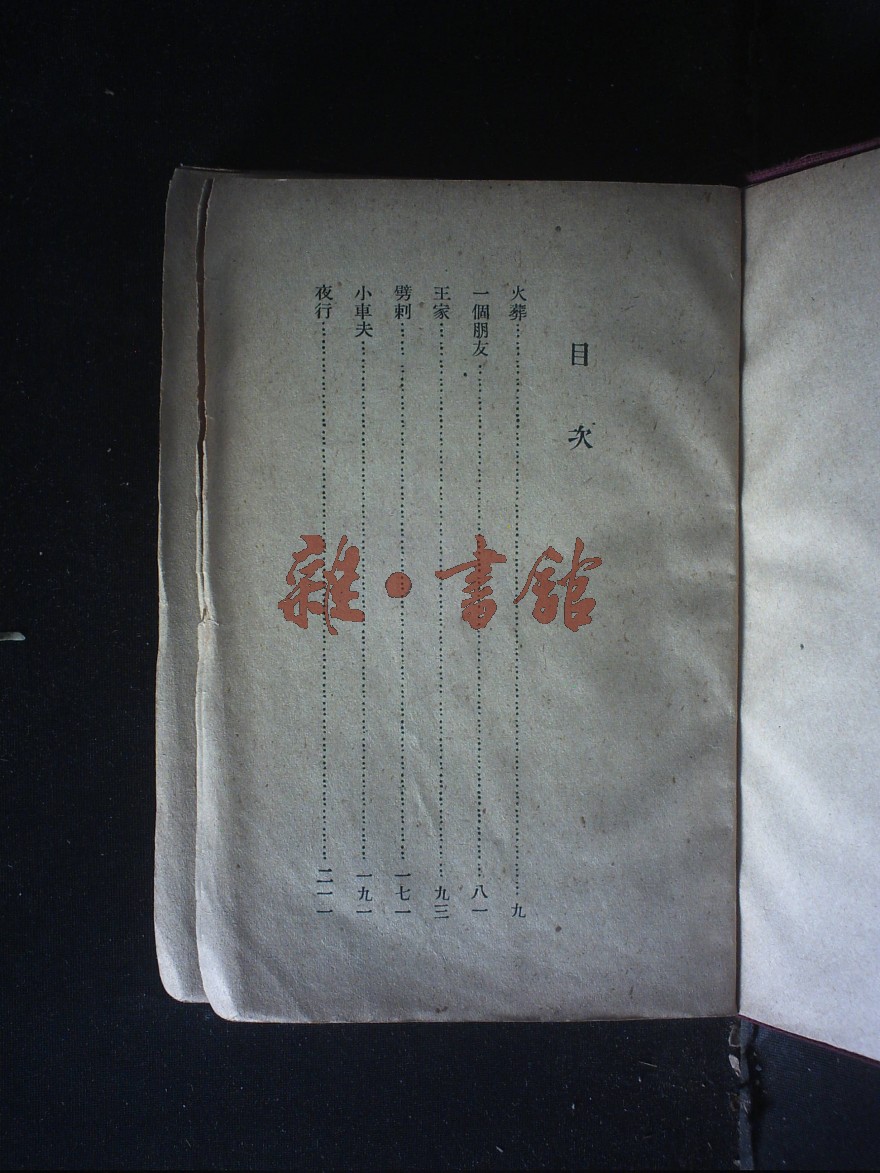 目次
火葬……九
一個朋友……八一
王家……九三
劈刺……一七一
小車夫……一九一
夜行……二一一
雜·書館